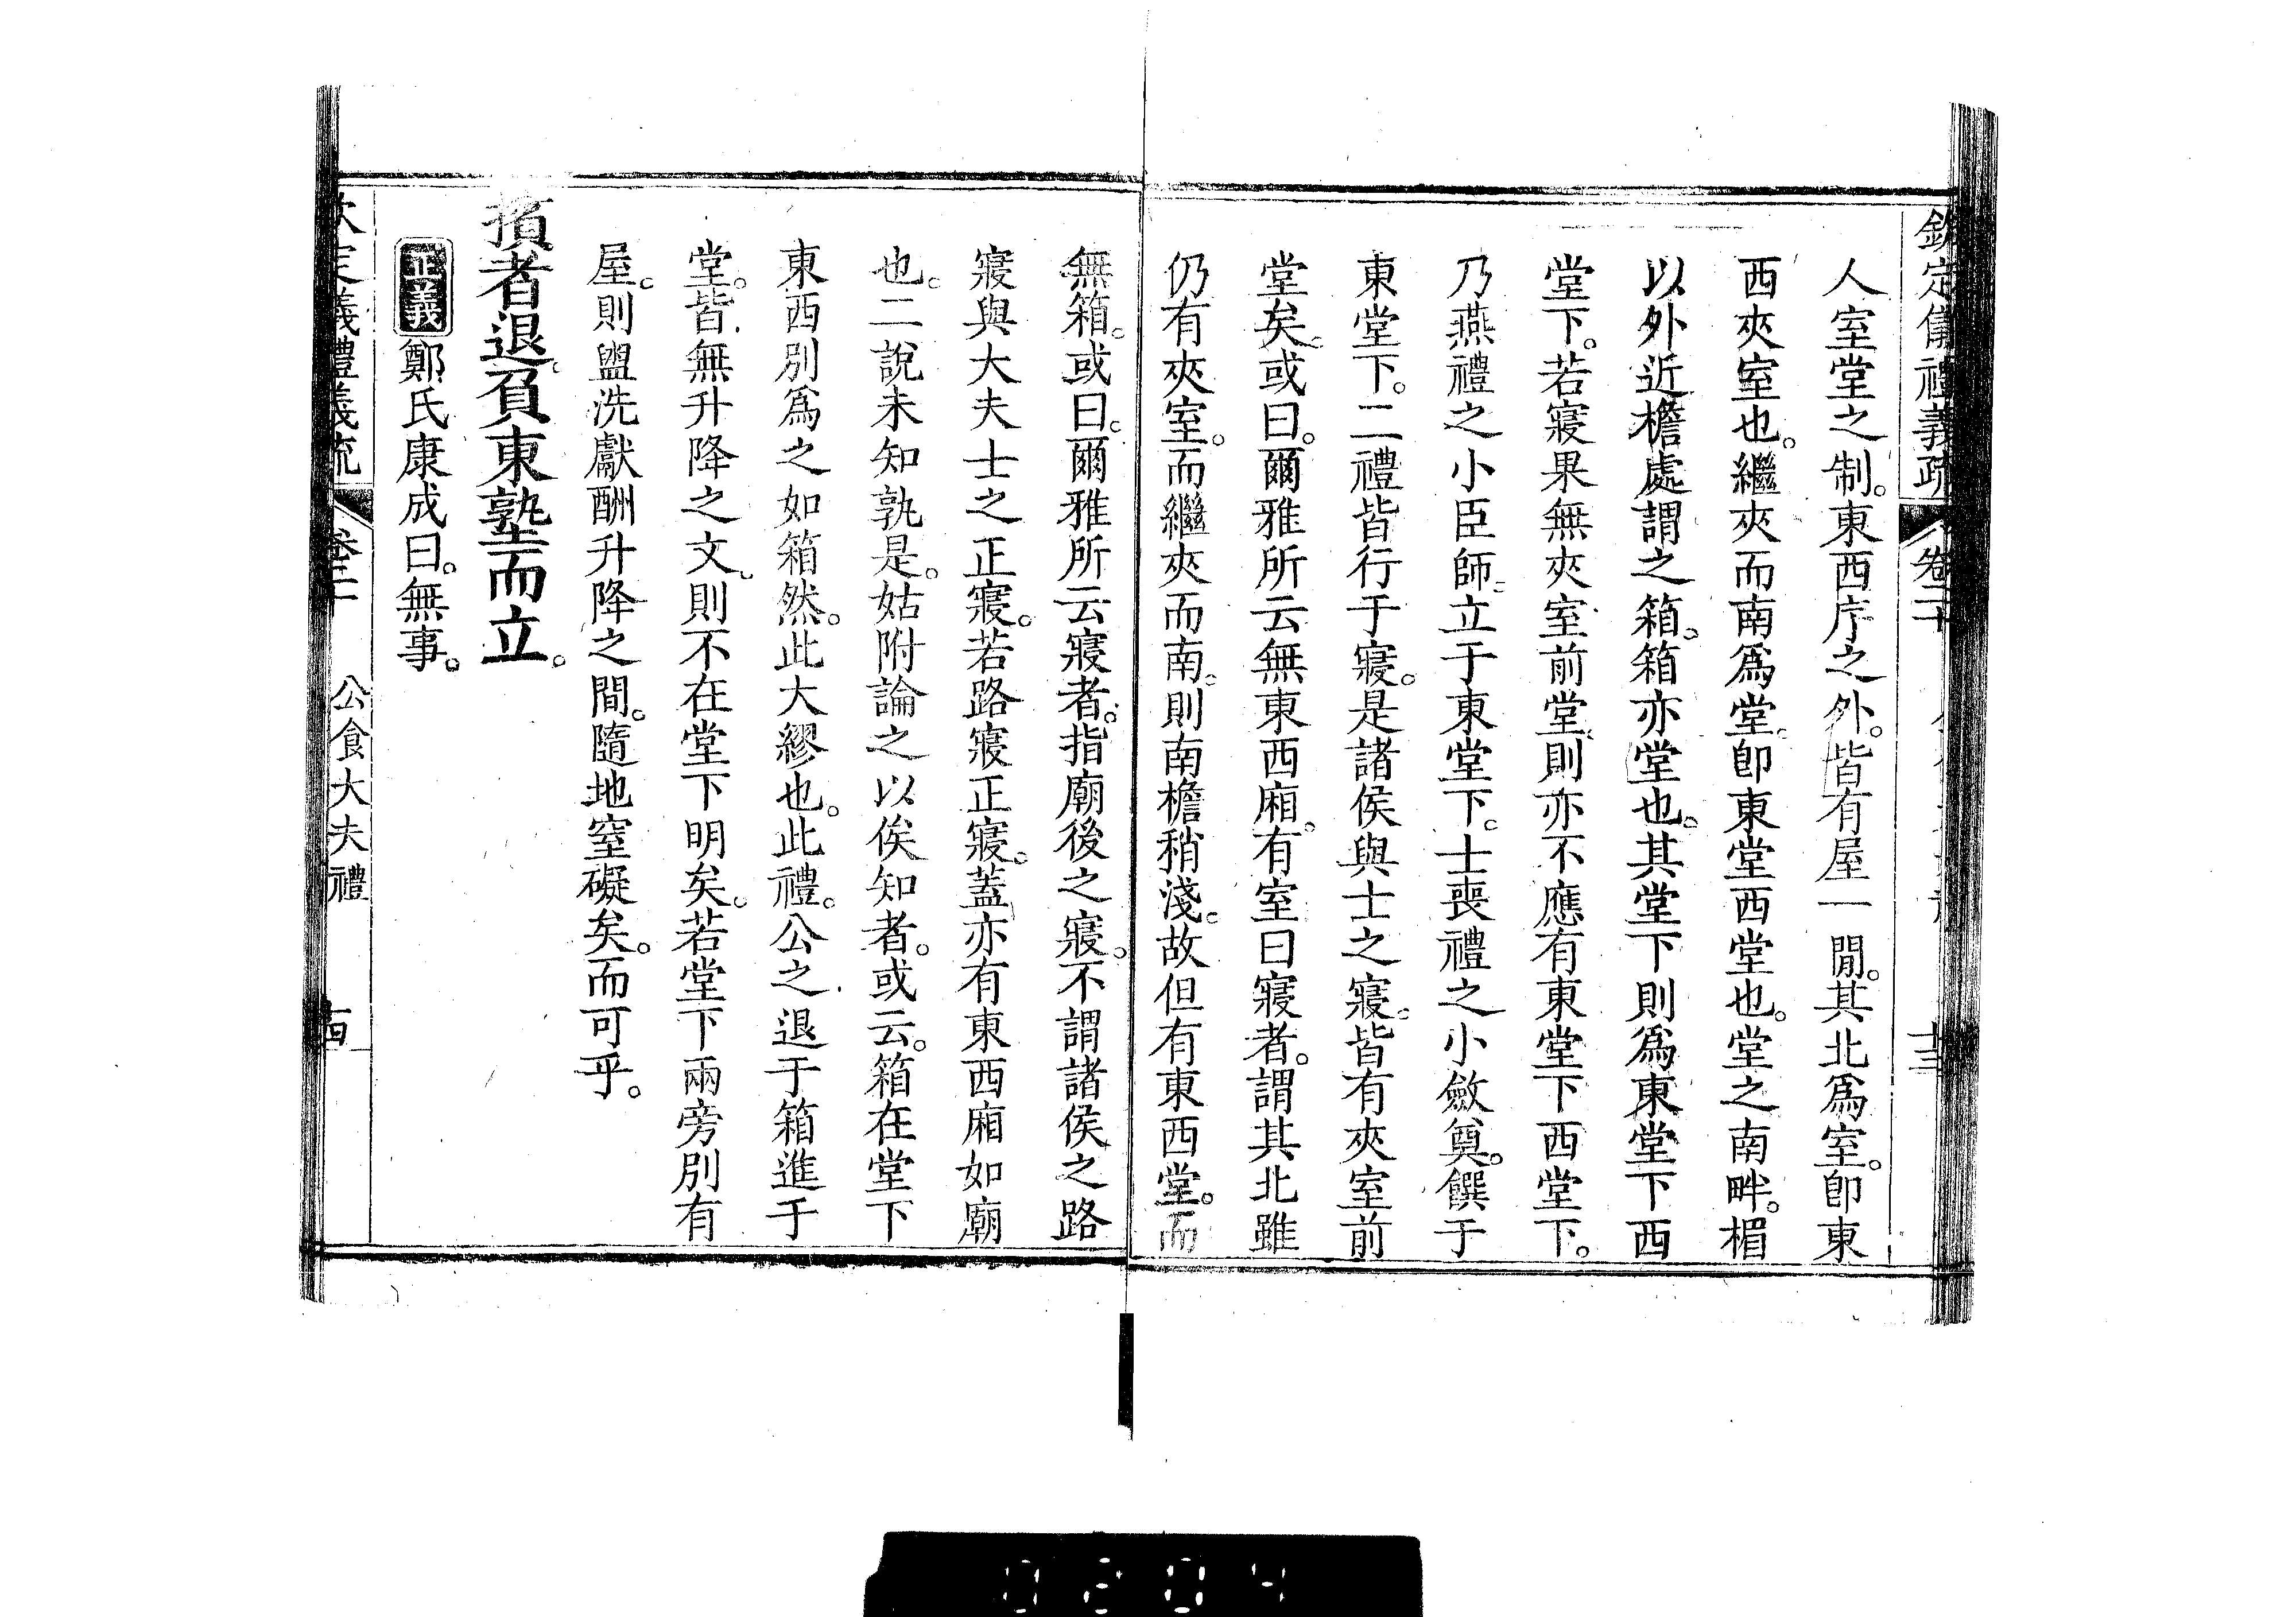 欽定儀禮義疏 卷二十 十三
人室堂之制。東西序之外。皆有屋一閒。其北爲室。卽東
西夾室也。繼夾而南爲堂。卽東堂西堂也。堂之南畔。楣
以外近檐處謂之箱。箱亦堂也。其堂下則爲東堂下西
堂下。若寢果無夾室前堂。則亦不應有東堂下西堂下。
乃燕禮之小臣師。立于東堂下。士喪禮之小斂奠。饌于
東堂下。二禮皆行于寢。是諸侯與士之寢。皆有夾室前
堂矣。或曰。爾雅所云無東西廂。有室曰寢者。謂其北雖
仍有夾室。而繼夾而南。則南檐稍淺。故但有東西堂。而
無箱。或曰。爾雅所云寢者。指廟後之寢。不謂諸侯之路
寢與大夫士之正寢。若路寢正寢。蓋亦有東西廂如廟
也。二說未知孰是。姑附論之以俟知者。或云。箱在堂下
東西別爲之如箱然。此大繆也。此禮。公之退于箱進于
堂。皆無升降之文。則不在堂下明矣。若堂下兩旁別有
屋。則盥洗獻酬升降之間。隨地窒礙矣。而可乎。
擯者退。負東塾而立。
正義 鄭氏康成曰。無事。
欽定義禮義疏 卷二 公食大夫禮 十四